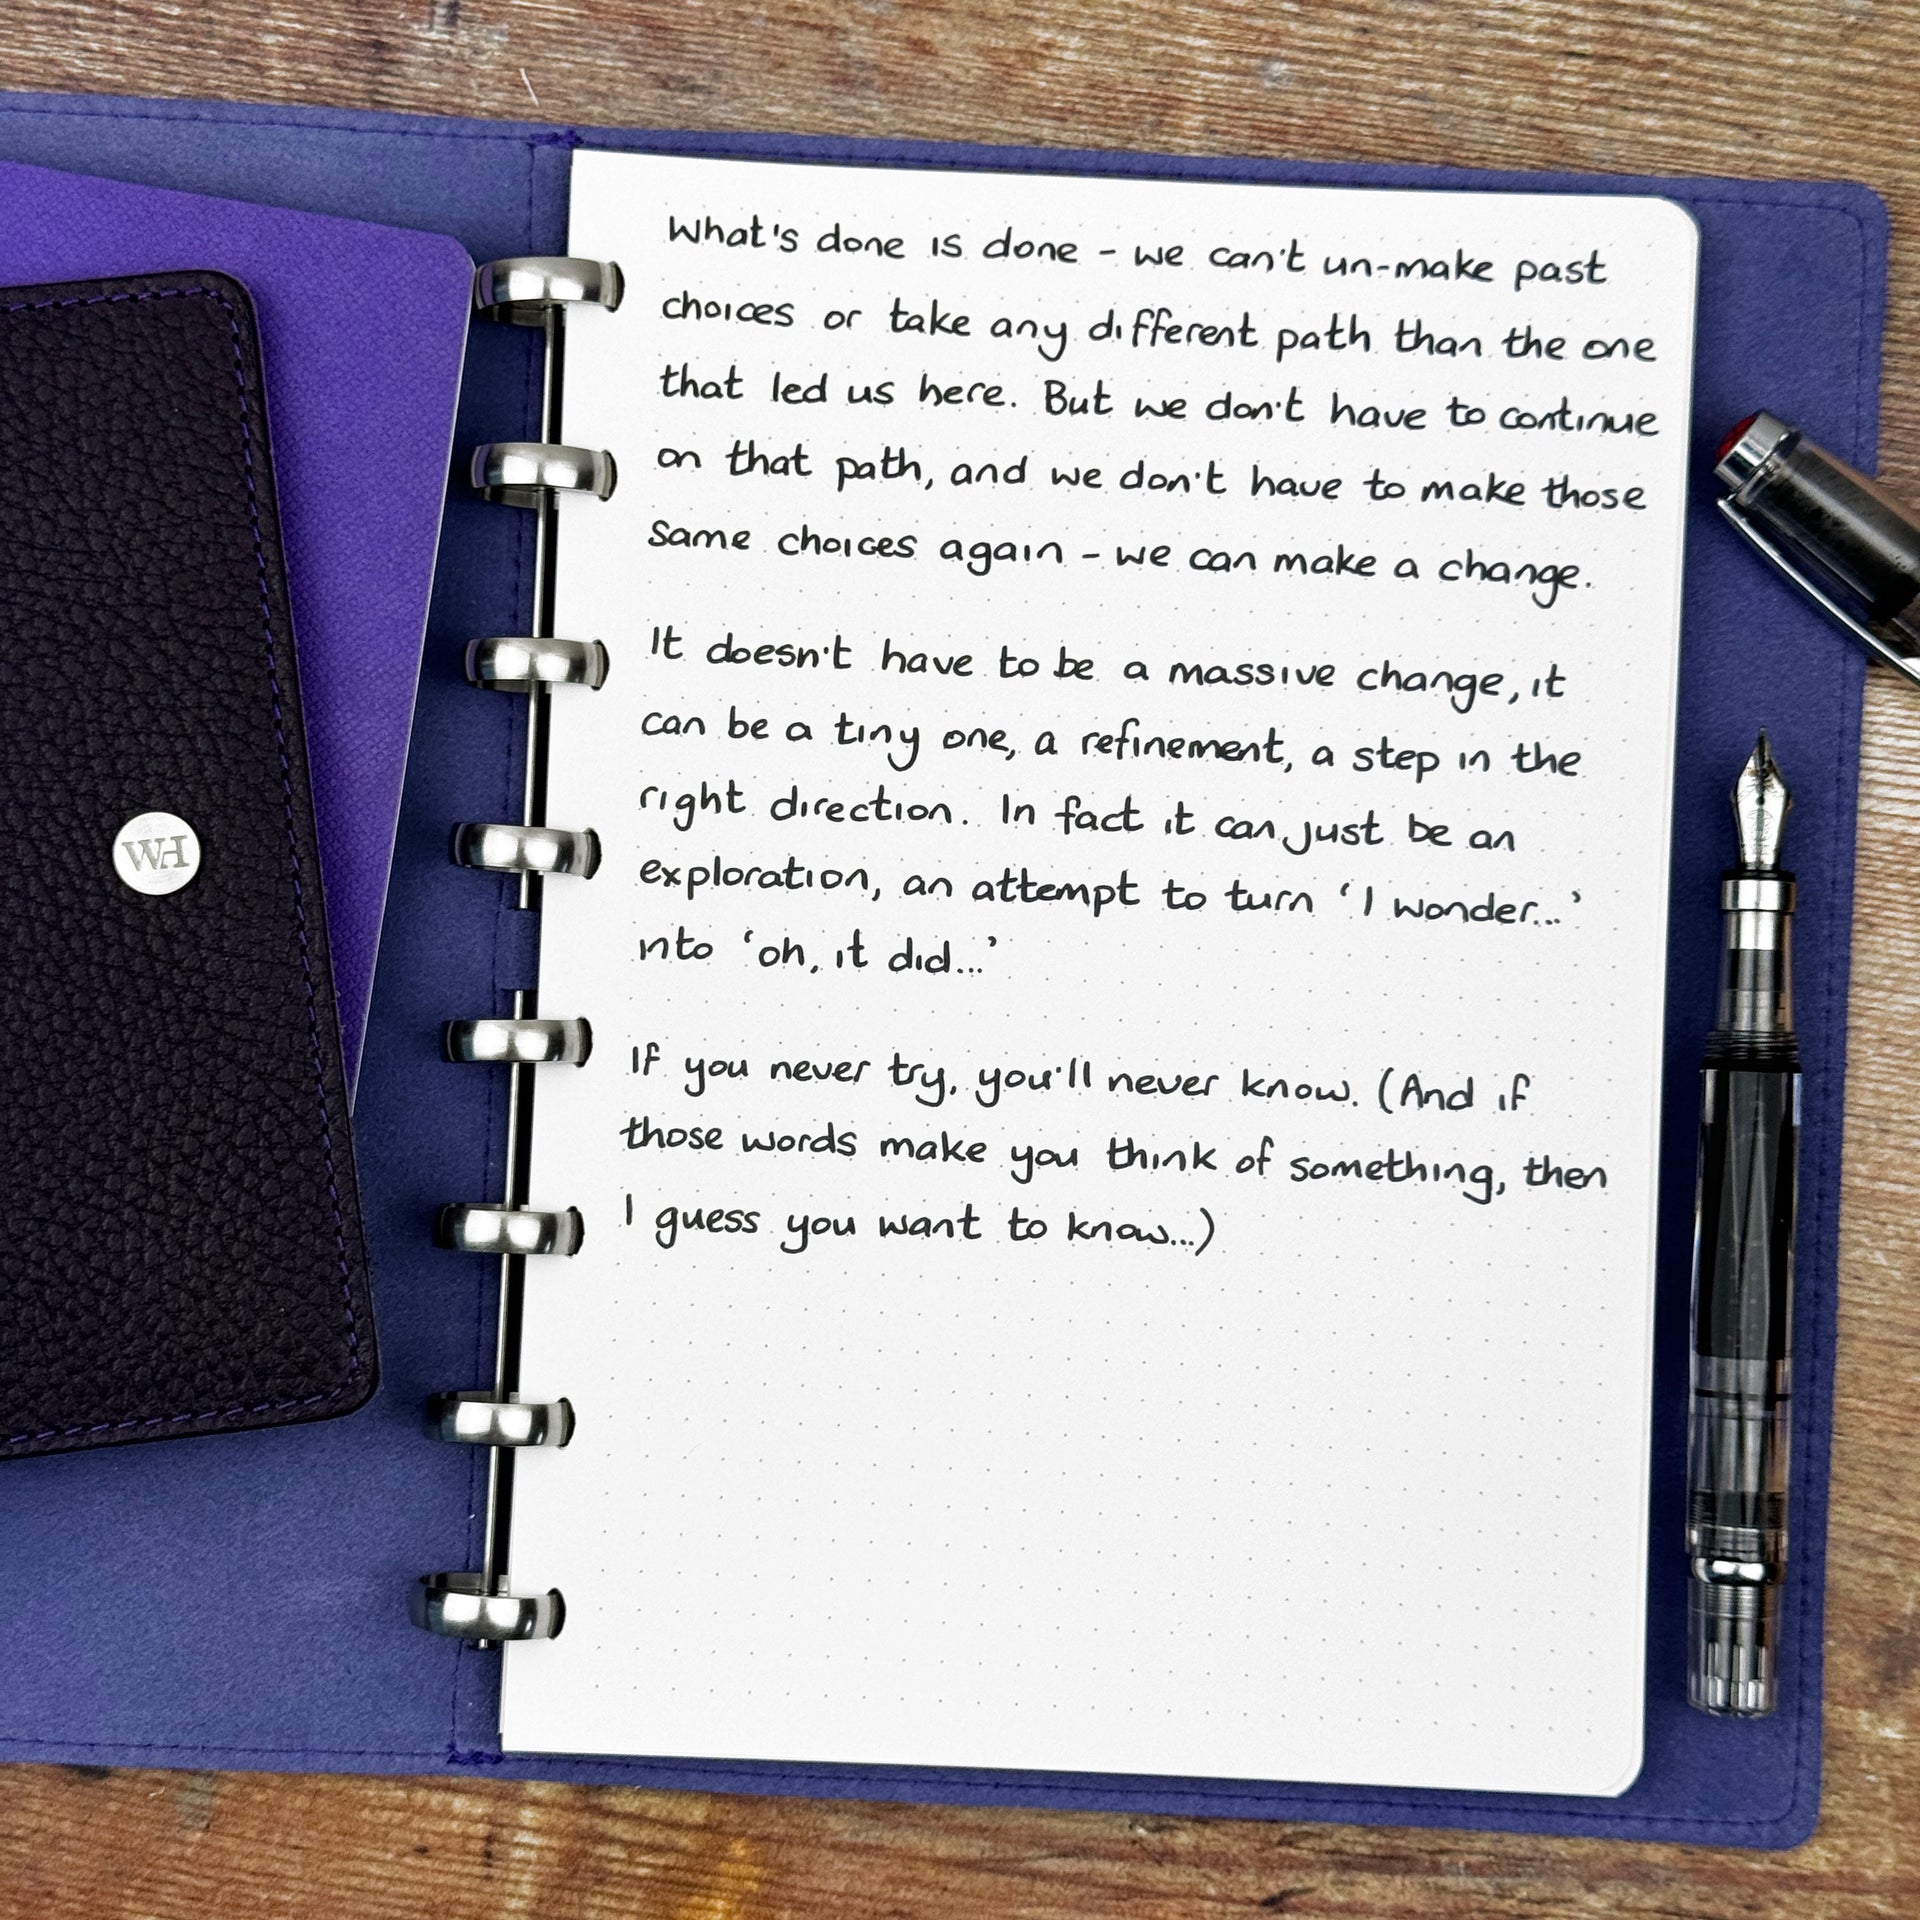 What's done is done - we can't un-make past
choices or take any different path than the one
that led us here. But we don't have to continue
on that path, and we don't have to make those
same choices again - we can make a change.
It doesn't have to be a massive change, it
can be a tiny one, a refinement, a step in the
right direction. In fact it can just be an
exploration, an attempt to turn 'I wonder...'
into 'oh, it did...'
If you never try, you'll never know. (And if
those words make you think of something, then
I guess you want to know...)
WH